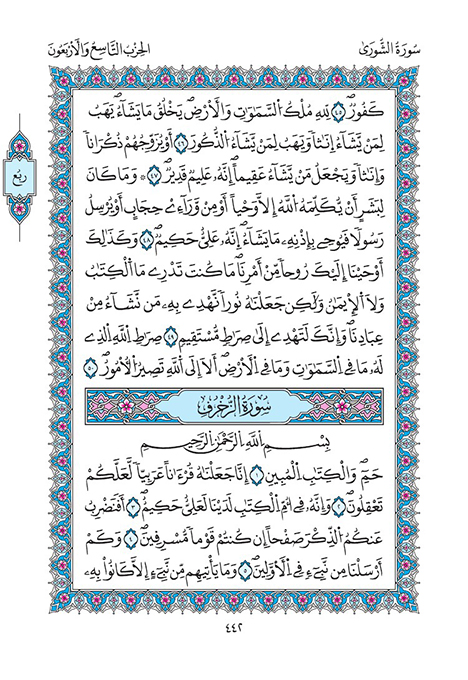 سُورَةُ الشُّورَىٰ
الحِزْبُ التَّاسِعُ وَالْأَرْبَعُونَ
كَفُورٌ ٤٥ لِلهِ مُلْكُ اُ۬لسَّمَٰوَٰتِ وَالَارْضِ يَخْلُقُ مَا يَشَآءُ يَهَبُ
لِمَنْ يَّشَآءُ إِنَٰثاً وَيَهَبُ لِمَنْ يَّشَآءُ اُ۬لذُّكُورَ ٤٦ أَوْ يُزَوِّجُهُمْ ذُكْرَاناً
وَإِنَٰثاً وَيَجْعَلُ مَنْ يَّشَآءُ عَقِيماً اِنَّهُۥ عَلِيمٌ قَدِيرٌ ٤٧ وَمَا كَانَ
لِبَشَرٍ اَنْ يُّكَلِّمَهُ اُ۬للَّهُ إِلَّا وَحْياً اَوْ مِنْ وَّرَآءِےْ حِجَابٍ اَوْ يُرْسِلُ
رَسُولاً فَيُوحِے بِإِذْنِهِۦ مَا يَشَآءُ اِنَّهُۥ عَلِيٌّ حَكِيمٌ ٤٨ وَكَذَٰلِكَ
أَوْحَيْنَآ إِلَيْكَ رُوحاً مِّنَ اَمْرِنَا مَا كُنتَ تَدْرِے مَا اَ۬لْكِتَٰبُ
وَلَا اَ۬لِايمَٰنُ وَلَٰكِن جَعَلْنَٰهُ نُوراً نَّهْدِے بِهِۦ مَن نَّشَآءُ مِنْ
عِبَادِنَا وَإِنَّكَ لَتَهْدِےٓ إِلَىٰ صِرَٰطٍ مُّسْتَقِيمٍ ٤٩ صِرَٰطِ اِ۬للَّهِ اِ۬لذِے
لَهُۥ مَا فِے اِ۬لسَّمَٰوَٰتِ وَمَا فِے اِ۬لَارْضِ أَلَآ إِلَى اَ۬للَّهِ تَصِيرُ اُ۬لُامُورُ ٥٠
سُورَةُ الزُّخْرُفِ
بِسْمِ اِ۬للَّهِ اِ۬لرَّحْمَٰنِ اِ۬لرَّحِيمِ
حَمِٓ وَالْكِتَٰبِ اِ۬لْمُبِينِ ١ إِنَّا جَعَلْنَٰهُ قُرْءَٰناً عَرَبِيّاً لَّعَلَّكُمْ
تَعْقِلُونَ ٢ وَإِنَّهُۥ فِےٓ أُمِّ اِ۬لْكِتَٰبِ لَدَيْنَا لَعَلِيٌّ حَكِيمٌ ٣ اَفَنَضْرِبُ
عَنكُمُ اُ۬لذِّكْرَ صَفْحاً اِن كُنتُمْ قَوْماً مُّسْرِفِينَ ٤ وَكَمَ
اَرْسَلْنَا مِن نَّبِےٓءٍ فِے اِ۬لَاوَّلِينَ ٥ وَمَا يَأْتِيهِم مِّن نَّبِےٓءٍ اِلَّا كَانُواْ بِهِۦ
رُبُع
٤٤٢